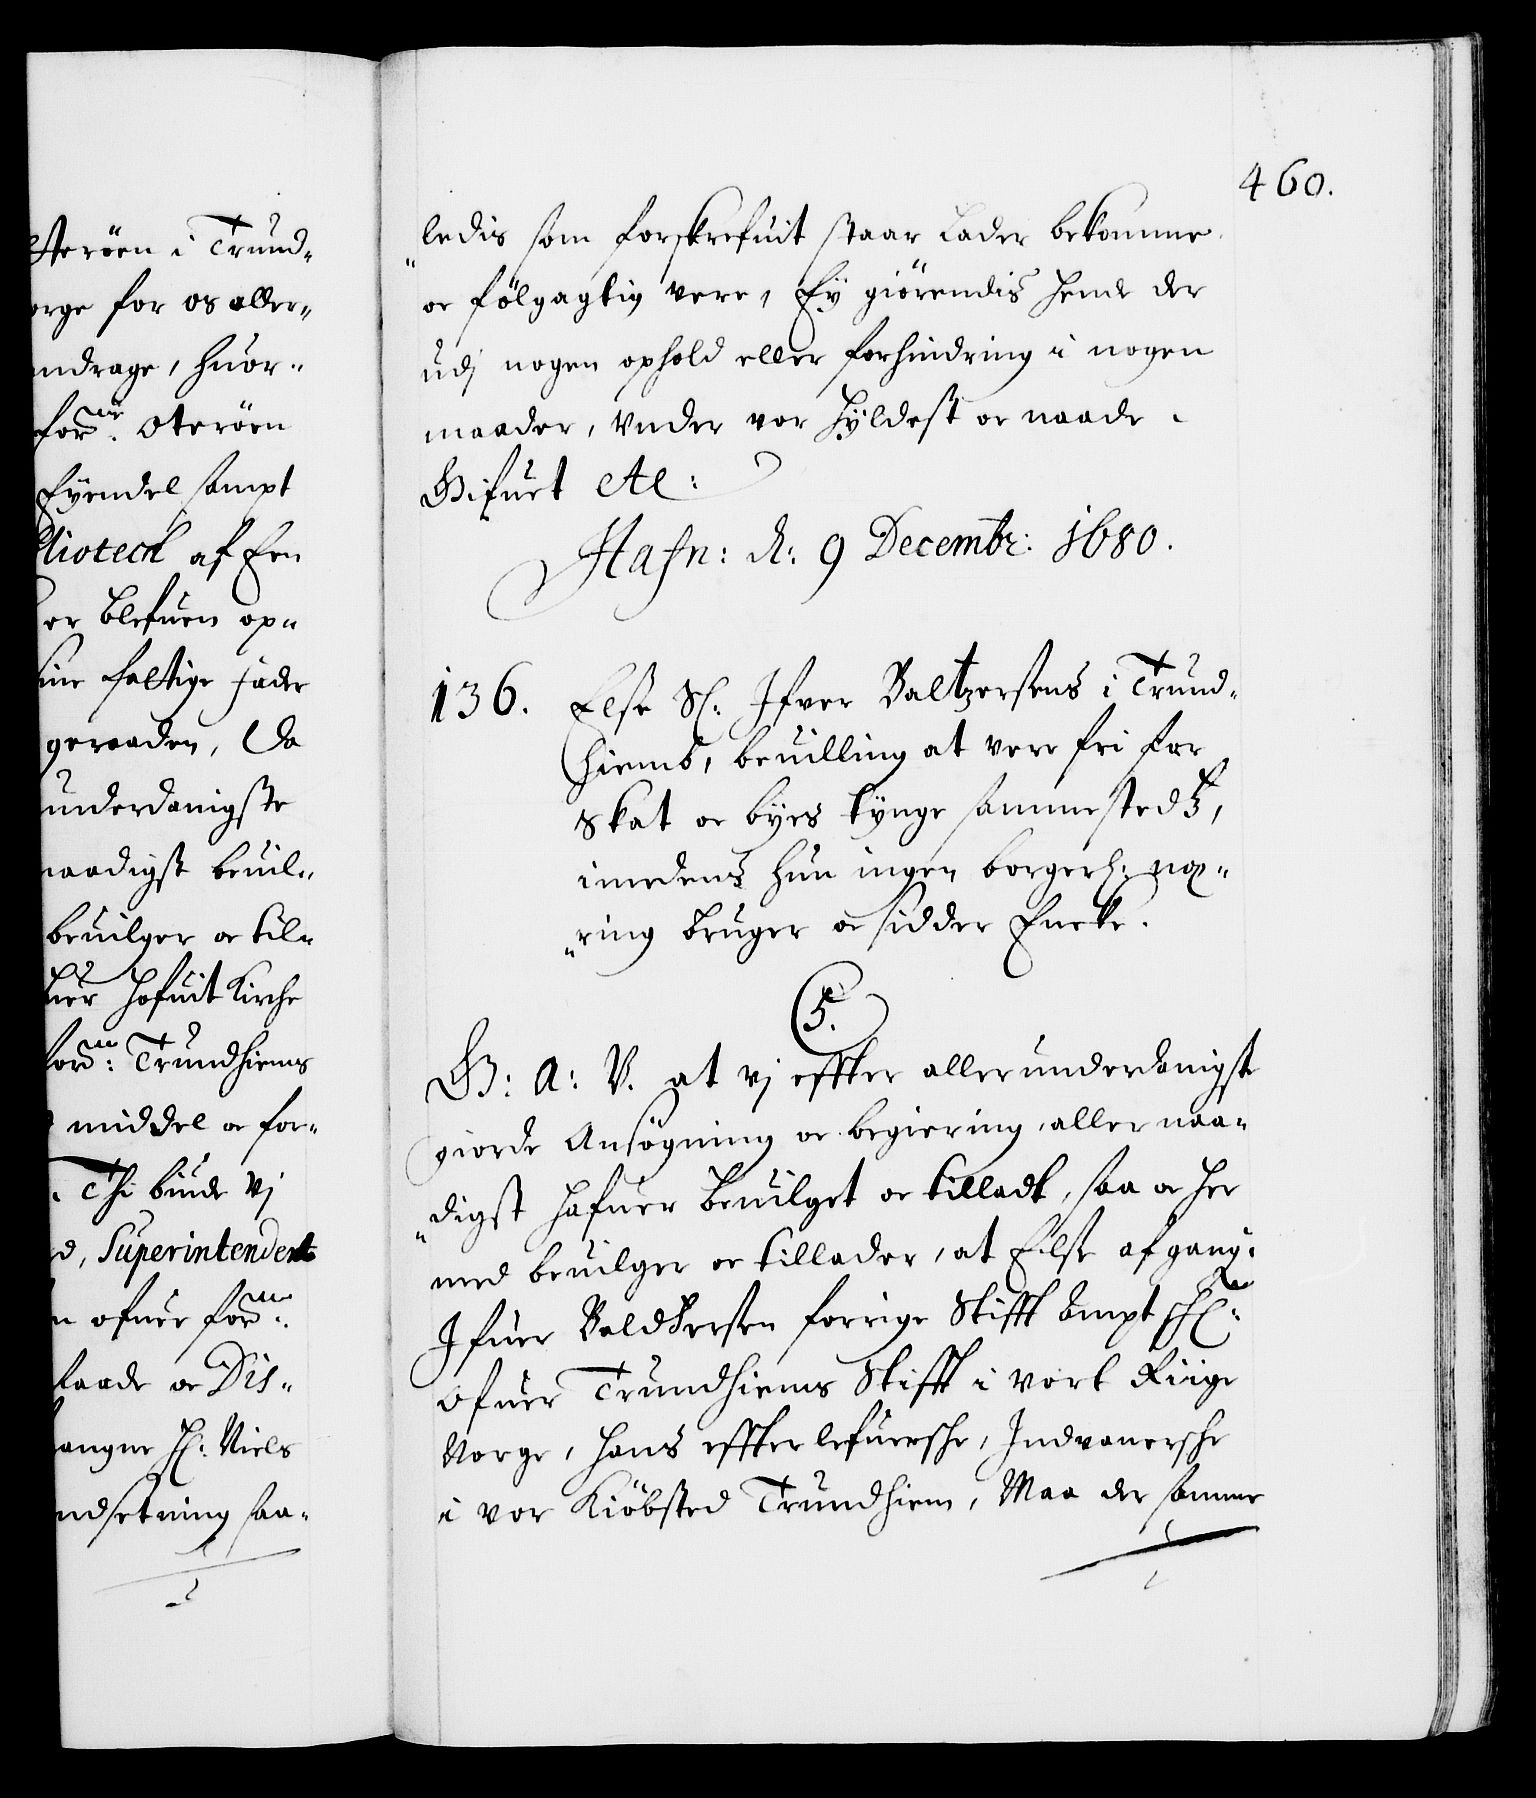 lterøen i Trund-
orge for os aller-
ndrage, huor-
forne: Oterøen
Eyendel sampt
lioteck af Een
er blefuen op-
ine fattige fader
geraaden, Da
underdanigste
naadigst beuil-
beuilger oc til-
uer Hofuit Kirche
forne: Trundhiems
middel oc for-
. Thi biude Vj
d, Superintendent
n ofuer forne:
raade oc Dis-
angne H: Niels
ndsetning saa-
460.
ledis som forskrefuit staar Lader bekomme
oc følgagtig vere, Ey giørendis hende der
udj nogen ophold eller forhindring i nogen
maader, Vnder vor Hyldest oc naade.
Gifuet etc:
Hafn: d: 9 Decembr: 1680.
136. Else Sl: Ifver Baltzersens i Trund-
hiemb, beuilling at vere fri for
Skat oc byes tynge sammestedtz,
imedens hun ingen borgerl: næ-
ring bruger oc sidder Encke.
C5.
G: A: V. at vj effter allerunderdanigste
giorde Ansøgning oc begiering, aller naa-
digst hafuer beuilget oc tilladt, saa oc her
med beuilger oc tillader, at Else afgang:
Ifuer Baldtzersen forrige Stifft Ampt skr:
ofuer Trundhiems Stifft i vort Riige
Norge, hans effterlefuersche, Indvanersche
i vor Kiøbsted Trundhiem, Maa der samme